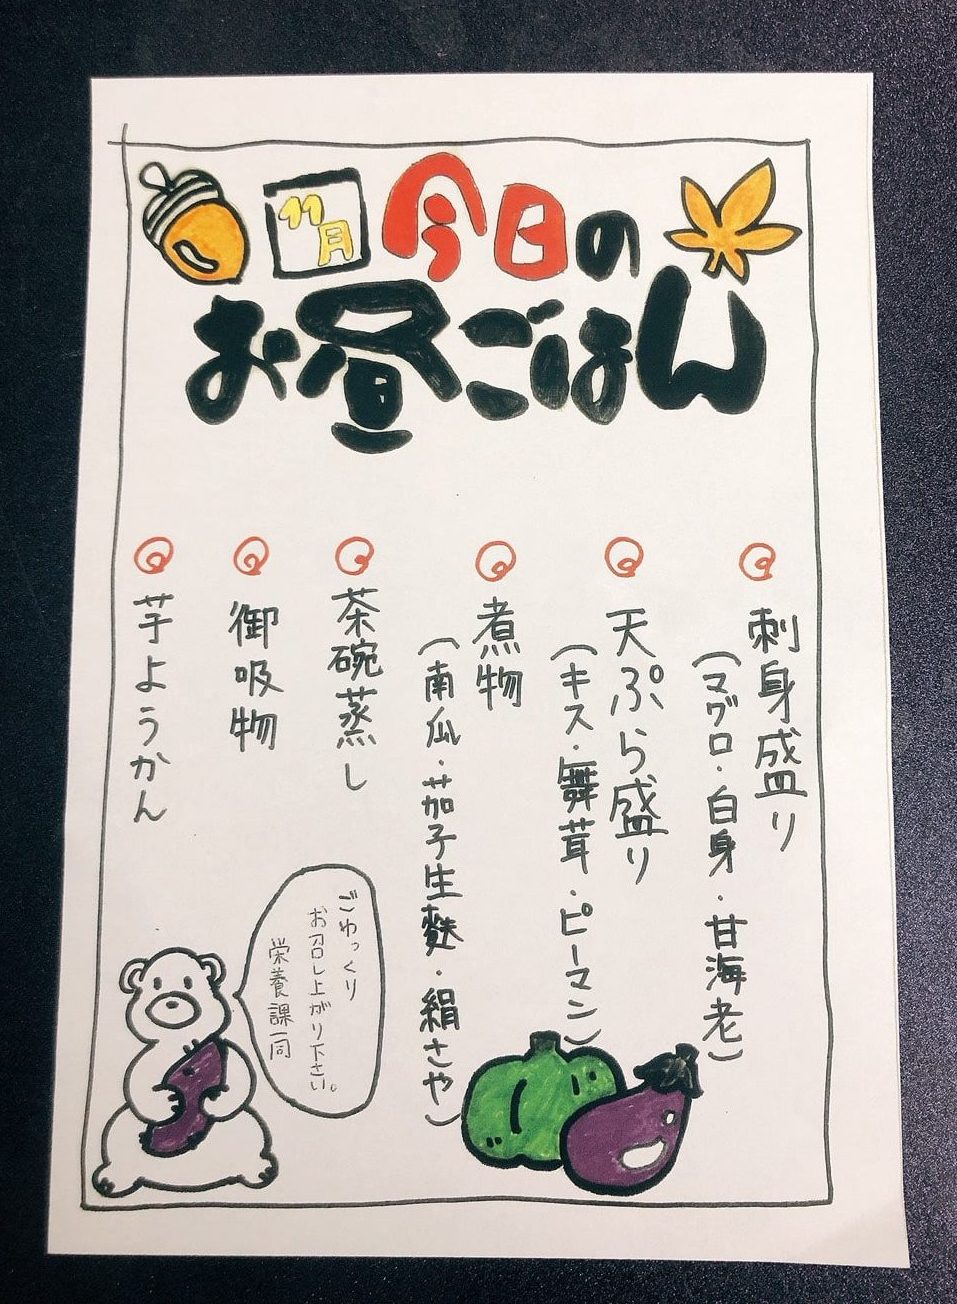 11月
今日の
お昼ごはん
刺身盛り
(マグロ・白身・甘海老)
天ぷら盛り
(キス・舞茸・ピーマン)
煮物
(南瓜・茄子生麩・絹さや)
茶碗蒸し
御吸物
芋ようかん
ごゆっくり
お召し上がり下さい。
栄養課一同